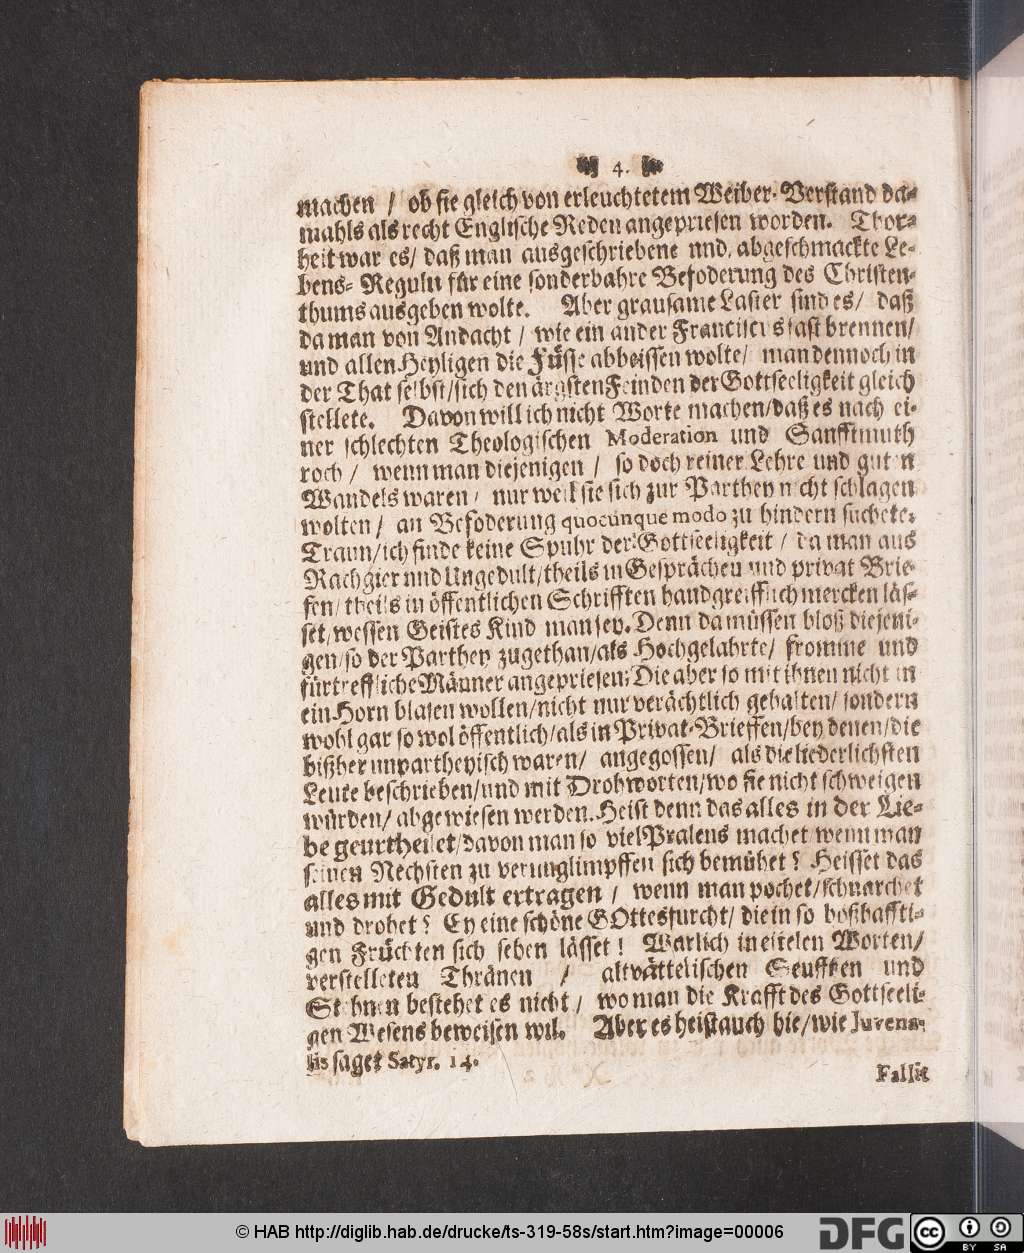 4.
machen / ob sie gleich von erleuchtetem Weiber-Verstand da-
mahls als recht Englische Reden angepriesen worden. Thor-
heit war es/ daß man ausgeschriebene und abgeschmackte Le-
bens-Reguln für eine sonderbahre Befoderung des Christen-
thums ausgeben wolte. Aber grausame Laster sind es/ daß
da man von Andacht / wie ein ander Franciscus fast brennen/
und allen Heyligen die Füsse abbeissen wolte/ man dennoch in
der That selbst/sich den ärgsten Feinden der Gottseeligkeit gleich
stellete. Davon will ich nicht Worte machen/daß es nach ei-
ner schlechten Theologischen Moderation und Sanfftmuth
roch / wenn man diejenigen / so doch reiner Lehre und guten
Wandels waren / nur weil sie sich zur Parthey nicht schlagen
wolten / an Befoderung quocunque modo zu hindern suchete.
Traun/ich finde keine Spuhr der Gottseeligkeit / da man aus
Rachgier und Ungedult/theils in Gesprächen und privat Brie-
fen/ theils in öffentlichen Schrifften handgreifflich mercken läs-
set/wessen Geistes Kind man sey. Denn da müssen bloß diejeni-
gen/so der Parthey zugethan/als Hochgelahrte/ fromme und
fürtreffliche Männer angepriesen; Die aber so mit ihnen nicht in
ein Horn blasen wollen/nicht nur verächtlich gehalten/ sondern
wohl gar so wol öffentlich/als in Privat-Brieffen/bey denen/die
bißher unpartheyisch waren/ angegossen/ als die liederlichsten
Leute beschrieben/und mit Drohworten/wo sie nicht schweigen
würden/ abgewiesen werden. Heist denn das alles in der Lie-
be geurtheilet/davon man so viel Pralens machet wenn man
seinen Nechsten zu verunglimpffen sich bemühet? Heisset das
alles mit Gedult ertragen / wenn man pochet/schnarchet
und drohet? Ey eine schöne GOttesfurcht/ die in so boßhaffti-
gen Früchten sich sehen lässet! Warlich in eitelen Worten/
verstelleten Thränen / altvättelischen Seufften und
Stehnen bestehet es nicht / wo man die Krafft des Gottseeli-
gen Wesens beweisen wil. Aber es heist auch hie/wie Juvena-
lis saget Satyr. 14.
Fallit
© HAB http://diglib.hab.de/drucke/ts-319-58s/start.htm?image=00006
DFG
CC BY SA